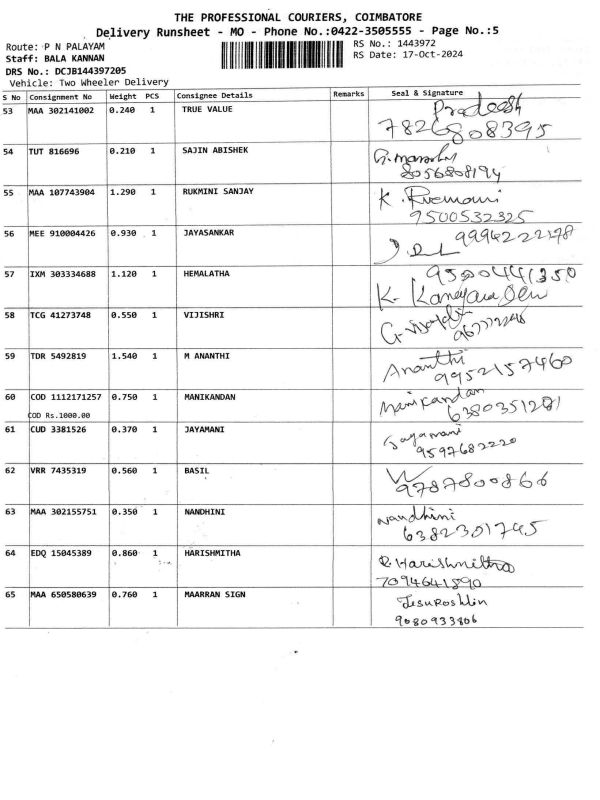 THE PROFESSIONAL COURIERS, COIMBATORE
Delivery Runsheet - MO - Phone No.:0422-3505555 - Page No.:5
Route: P N PALAYAM
RS No.: 1443972
Staff: BALA KANNAN
RS Date: 17-Oct-2024
DRS No.: DCJB144397205
Vehicle: Two Wheeler Delivery
S No Consignment No Weight PCS Consignee Details Remarks Seal & Signature
53 MAA 302141002 0.240 1 TRUE VALUE Pradeesh
7826808395
54 TUT 816696 0.210 1 SAJIN ABISHEK
8056808194
55 MAA 107743904 1.290 1 RUKMINI SANJAY K.
9500532325
56 MEE 910004426 0.930 1 JAYASANKAR
57 IXM 303334688 1.120 1 HEMALATHA 9500441350
K.
58 TCG 41273748 0.550 1 VIJISHRI
59 TDR 5492819 1.540 1 M ANANTHI Ananthi
9952157460
60 COD 1112171257 0.750 1 MANIKANDAN Manikandan
COD Rs.1000.00
6380351281
61 CUD 3381526 0.370 1 JAYAMANI Jayamani
9597682220
62 VRR 7435319 0.560 1 BASIL
9787800866
63 MAA 302155751 0.350 1 NANDHINI Nandhini
6382301745
64 EDQ 15045389 0.860 1 HARISHMITHA R. Harishmitha
7094641890
65 MAA 650580639 0.760 1 MAARRAN SIGN Jesuroshlin
9080933806